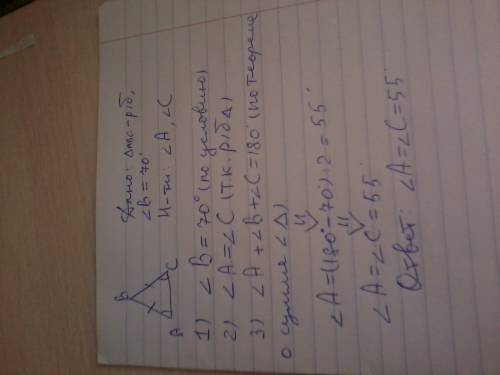 Дано: Δавс-р/б,
∠B=70°
Н-ти: ∠A, ∠C
B
A
C
1) ∠B=70° (по условию)
2) ∠A=∠C (т.к. р/б Δ)
3) ∠A+∠B+∠C=180° (по теореме
о сумме ∠Δ)
∠A=(180°-70°):2=55°
∠A=∠C=55°
Ответ: ∠A=∠C=55°